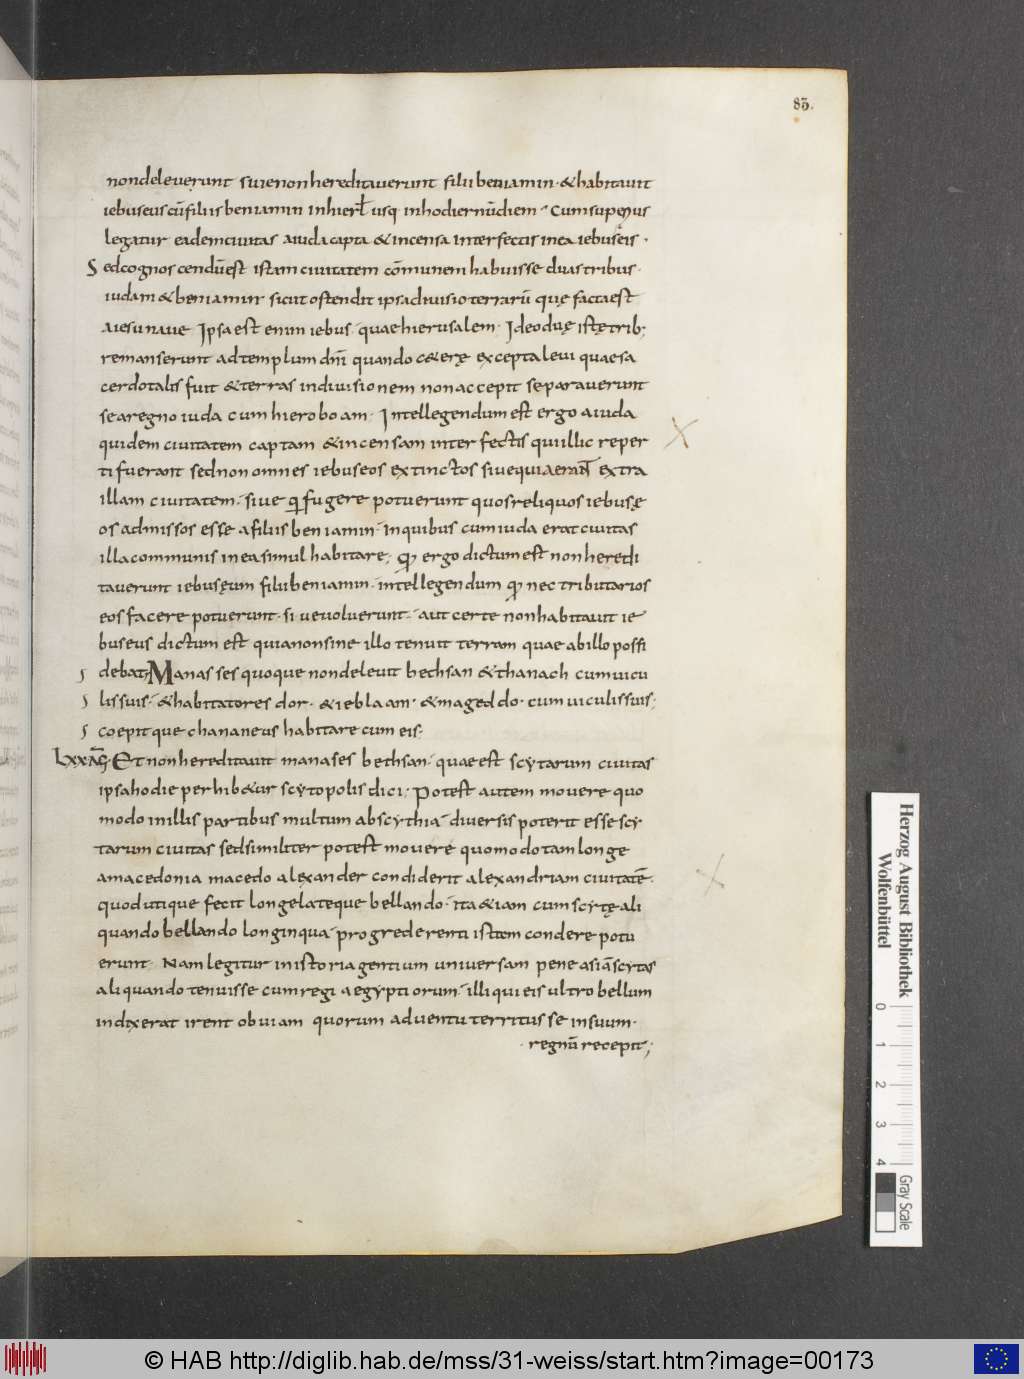 85.
nondeleverunt sivenonhereditaverunt filii beniamin · & habitavit
iebuseus cū filiis beniamin inhierl̄ usq inhodiernūdiem · Cumsuperius
legatur eademcivitas aiuda capta & incensa interfectis inea iebuseis ·
Sedcognoscendūest istam civitatem cōmunem habuisse duas tribus ·
iudam & beniamin sicut ostendit ipsa divisio terrarū quę facta est
aiesu nave Ipsa est enim iebus · quae hierusalem · Ideo duę istę trib;
remanserunt ad templum dn̄i quando c&erę excepta levi quae sa
cerdotalis fuit & terras indivisionem non accepit separaverunt
se aregno iuda cum hieroboam · Intellegendum est ergo aiuda
quidem civitatem captam & incensam interfectis qui illic reper
ti fuerant sed non omnes iebuseos extinctos sive qui aerant extra
illam civitatem · sive qi fugere potuerunt quos reliquos iebusę
os admissos esse afiliis beniamin · inquibus cum iuda erat civitas
illa communis in ea simul habitare; qđ ergo dictum est non heredi
taverunt iebusęum filii beniamin · intellegendum qđ nec tributarios
eos facere potuerunt · sive voluerunt · aut certe non habitavit ie
buseus dictum est quia non sine illo tenuit terram quae ab illo possi
debat; Manasses quoque non delevit bethsan & thanach cum vicu
lis suis · & habitatores dor · & ieblaam · & mageddo · cum viculis suis;
coepitque chananeus habitare cum eis;
Lxxāg · Et non hereditavit manases bethsan · quae est scytarum civitas
ipsa hodie perhib&ur scytopolis dici; Potest autem movere quo
modo in illis partibus multum abscythia diversis poterit esse scy
tarum civitas sed similiter potest movere quomodo tam longe
amacedonia macedo alexander condiderit alexandriam civitatē ·
quod utique fecit longe lateque bellando · ita & iam cum scytę ali
quando bellando longinqua progrederenti istam condere potu
erunt · Nam legitur in istoria gentium universam pene asiā scytas
aliquando tenuisse cum regi aegyptiorum · illi qui eis ultro bellum
indixerat irent obviam quorum adventu territus se insuum ·
· regnū recepit;
Herzog August Bibliothek
Wolfenbüttel
0 1 2 3 4
Gray Scale
© HAB http://diglib.hab.de/mss/31-weiss/start.htm?image=00173